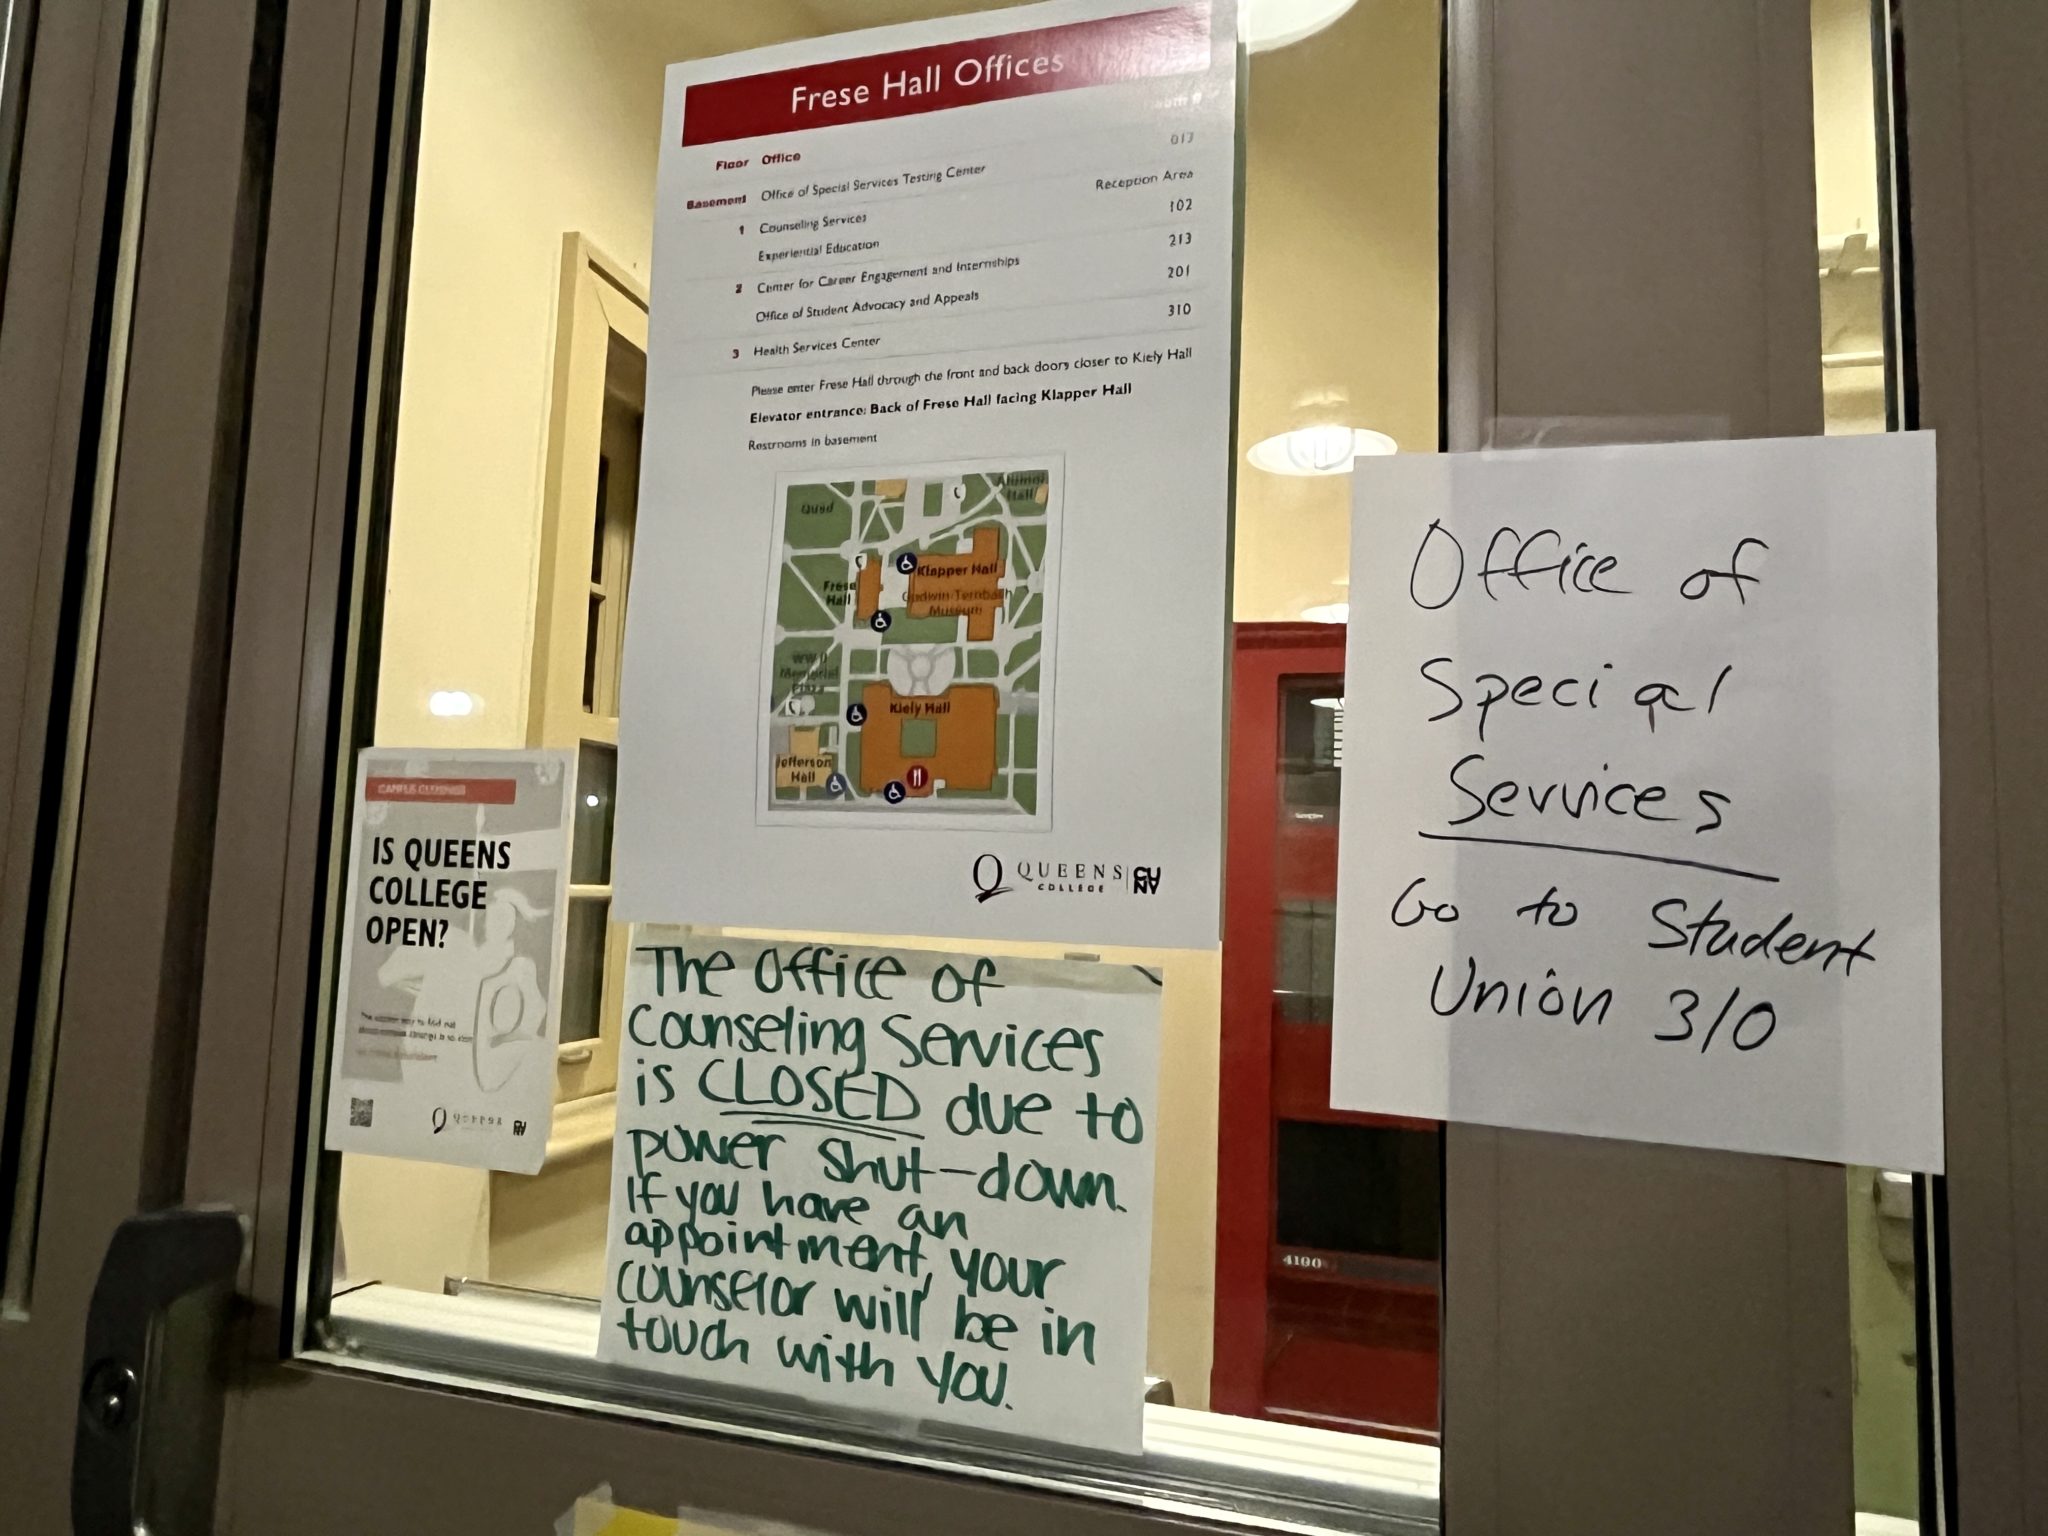 Frese Hall Offices
Floor Office
Basement Office of Special Services Testing Center 017
1 Counseling Services Reception Area
Experiential Education 102
2 Center for Career Engagement and Internships 213
Office of Student Advocacy and Appeals 201
3 Health Services Center 310
Please enter Frese Hall through the front and back doors closer to Kiely Hall
Elevator entrance: Back of Frese Hall facing Klapper Hall
Restrooms in basement
Quad
Alumni
Hall
Klapper Hall
Godwin-Ternbach
Museum
Frese
Hall
WW II
Memorial
Plaza
Kiely Hall
Jefferson
Hall
QUEENS
COLLEGE
CUNY
CAMPUS CLOSINGS
IS QUEENS
COLLEGE
OPEN?
QUEENS
CUNY
The Office of
Counseling Services
is CLOSED due to
power shut-down.
If you have an
appointment, your
counselor will be in
touch with you.
Office of
Special
Services
Go to Student
Union 310
4190